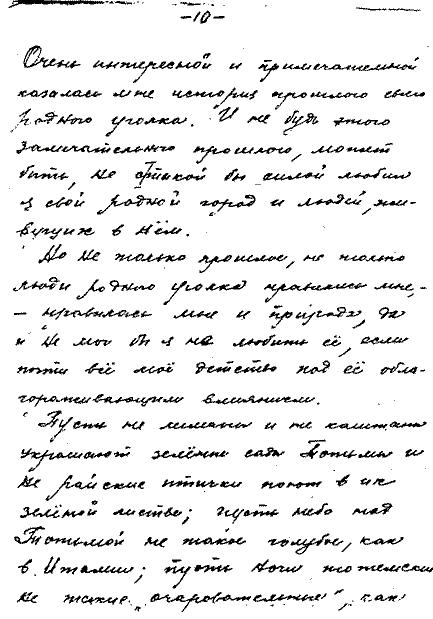 -10-
Очень интересной и примечательной
казалась мне история прошлого своего
родного уголка. И не будь этого
замечательного прошлого, может
быть, не с такой бы силой любил
я свой родной город и людей, жи-
вущих в нём.
Но не только прошлое, не только
люди родного уголка нравились мне,
- нравилась мне и природа, да
и не мог бы я не любить её, если
почти всё моё детство под её обла-
гораживающим влиянием.
Пусть не лимоны и не каштаны
украшают зелёные сады Тотьмы и
не райские птички поют в их
зелёной листве; пусть небо над
Тотьмой не такое голубое, как
в Италии; пусть ночи тотемские
не такие "очаровательные", как